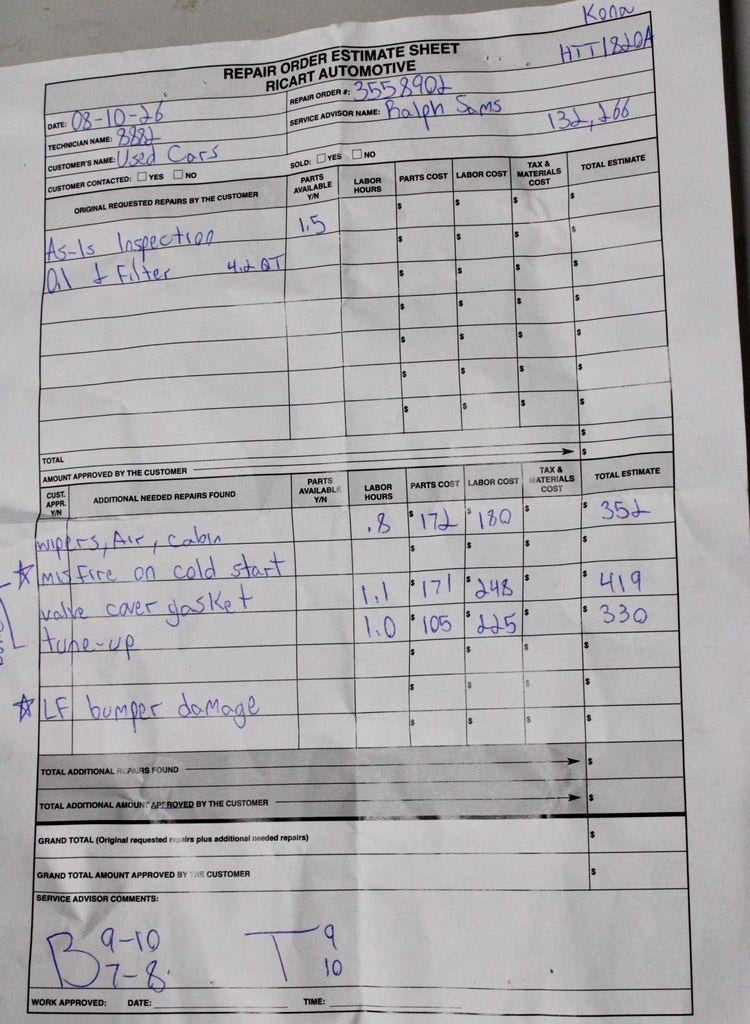 Kona
REPAIR ORDER ESTIMATE SHEET
RICART AUTOMOTIVE
HTT1820A
DATE: 08-10-26
REPAIR ORDER #: 3558902
TECHNICIAN NAME: 8882
SERVICE ADVISOR NAME: Ralph Sams
132,266
CUSTOMER'S NAME: Used Cars
CUSTOMER CONTACTED: YES NO
SOLD: YES NO
ORIGINAL REQUESTED REPAIRS BY THE CUSTOMER PARTS AVAILABLE Y/N LABOR HOURS PARTS COST LABOR COST TAX & MATERIALS COST TOTAL ESTIMATE
As-Is Inspection 1.5 $ $ $ $
Oil & Filter 4.2 QT $ $ $ $
$ $ $ $
$ $ $ $
$ $ $ $
$ $ $ $
$ $ $ $
TOTAL $
AMOUNT APPROVED BY THE CUSTOMER $
CUST. APPR. Y/N ADDITIONAL NEEDED REPAIRS FOUND PARTS AVAILABLE Y/N LABOR HOURS PARTS COST LABOR COST TAX & MATERIALS COST TOTAL ESTIMATE
wipers, Air, cabin .8 $ 172 $ 180 $ $ 352
misfire on cold start $ $ $ $
valve cover gasket 1.1 $ 171 $ 248 $ $ 419
tune-up 1.0 $ 105 $ 225 $ $ 330
$ $ $ $
LF bumper damage $ $ $ $
$ $ $ $
TOTAL ADDITIONAL REPAIRS FOUND $
TOTAL ADDITIONAL AMOUNT APPROVED BY THE CUSTOMER $
GRAND TOTAL (Original requested repairs plus additional needed repairs) $
GRAND TOTAL AMOUNT APPROVED BY THE CUSTOMER $
SERVICE ADVISOR COMMENTS:
B 9-10 T 9
7-8 10
WORK APPROVED: DATE: TIME: